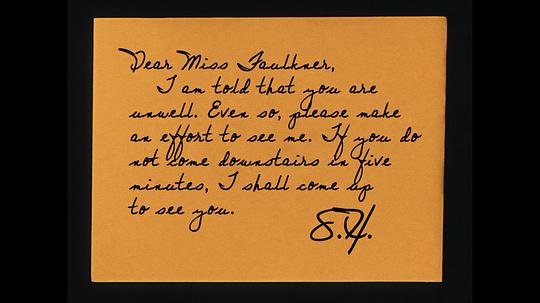 Dear Miss Faulkner,
I am told that you are
unwell. Even so, please make
an effort to see me. If you do
not come downstairs in five
minutes, I shall come up
to see you.
S.H.